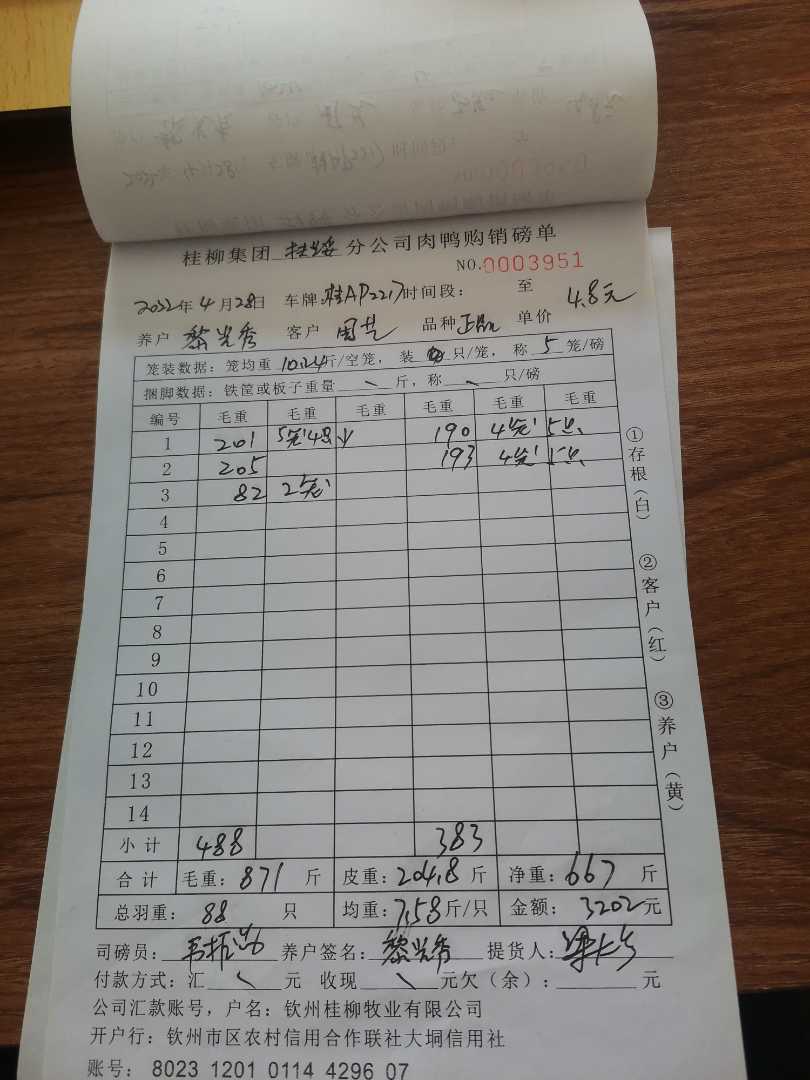 桂柳集团 扶绥 分公司肉鸭购销磅单
NO.0003951
2022年 4 月 28日 车牌:桂AP2217 时间段: 至
养户 黎光秀 客户 周艺 品种 正品 单价 4.8元
笼装数据:笼均重 10.24斤/空笼, 装 只/笼, 称 5 笼/磅
捆脚数据:铁筐或板子重量 \ 斤,称 \ 只/磅
编号 毛重 毛重 毛重 毛重 毛重 毛重
1 201 5笼4只 190 4笼 5只
2 205 193 4笼 5只
3 82 2笼
4
5
6
7
8
9
10
11
12
13
14
小 计 488 383
合 计 毛重:871 斤 皮重:204.8 斤 净重:667 斤
总羽重: 88 只 均重:7.58斤/只 金额: 3202元
司磅员: 养户签名:黎光秀 提货人:
付款方式:汇 \ 元 收现 \ 元欠(余): 元
公司汇款账号,户名:钦州桂柳牧业有限公司
开户行:钦州市区农村信用合作联社大垌信用社
账号: 8023 1201 0114 4296 07
①存根(白)
②客户(红)
③养户(黄)